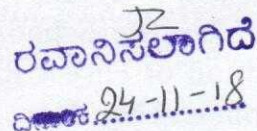 ರವಾನಿಸಲಾಗಿದೆ
ದಿನಾಂಕ 24-11-18